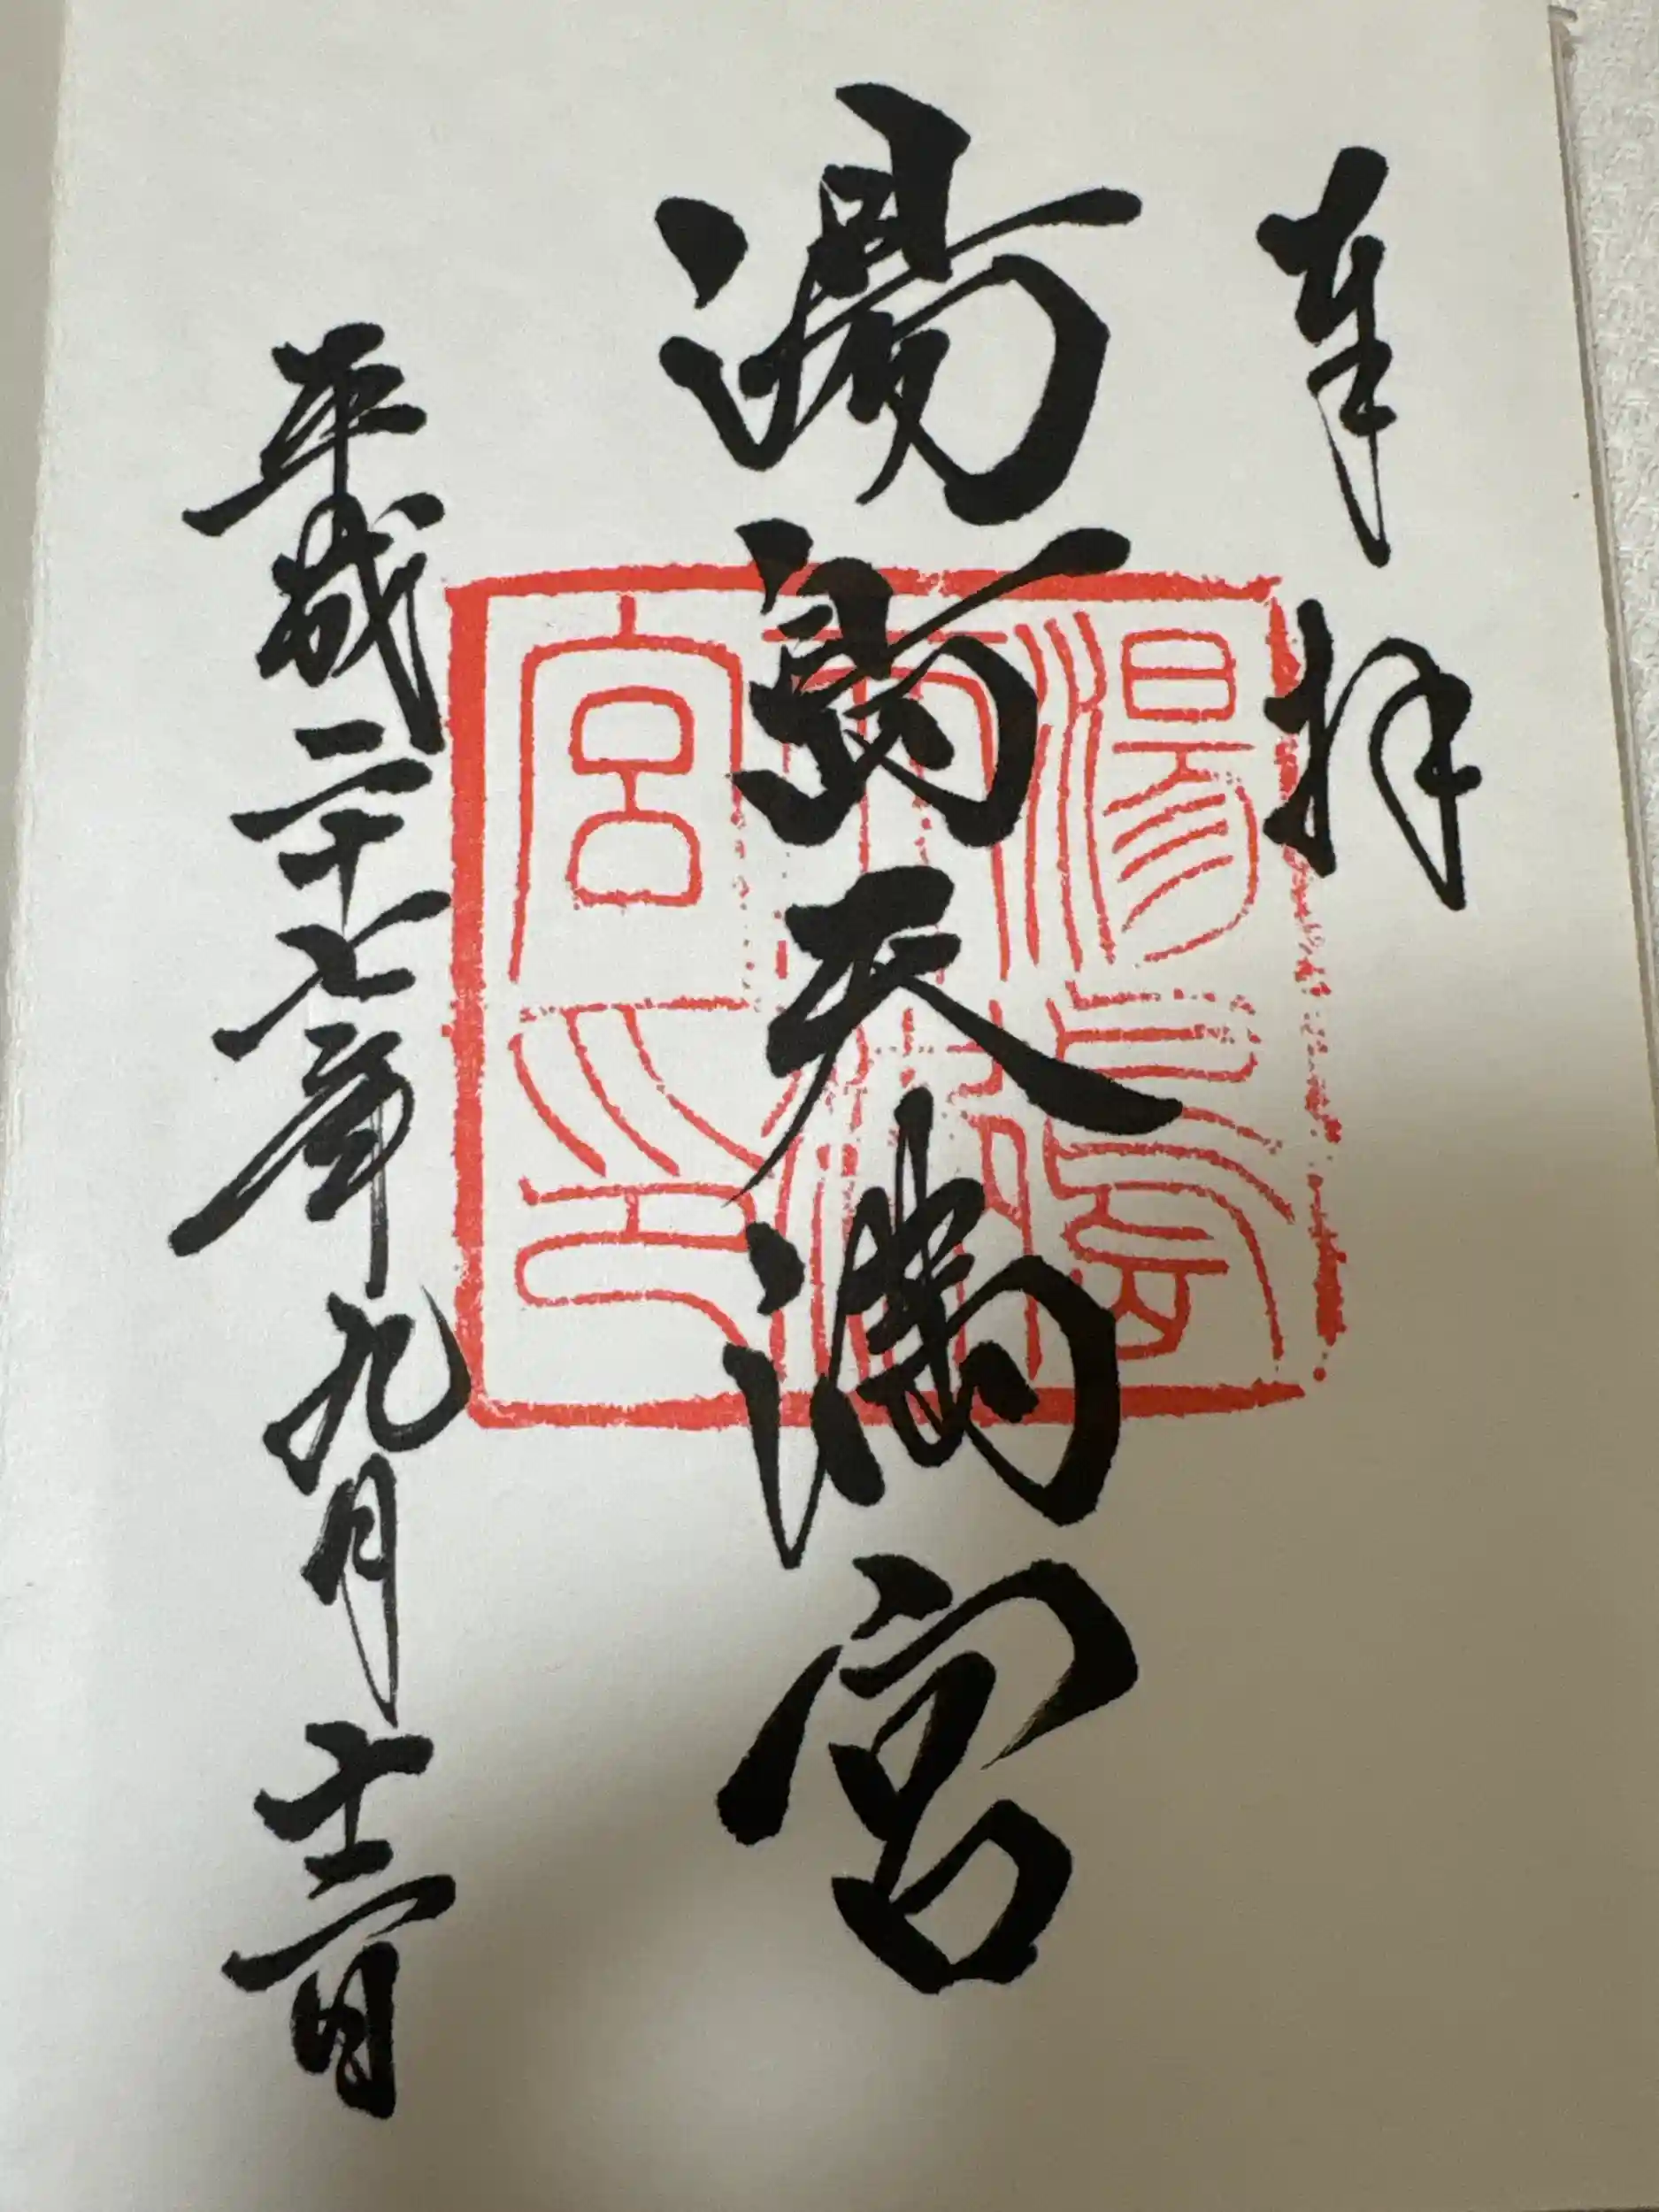 奉拝
湯島天満宮
平成二十七年九月十二日
湯島天満宮印